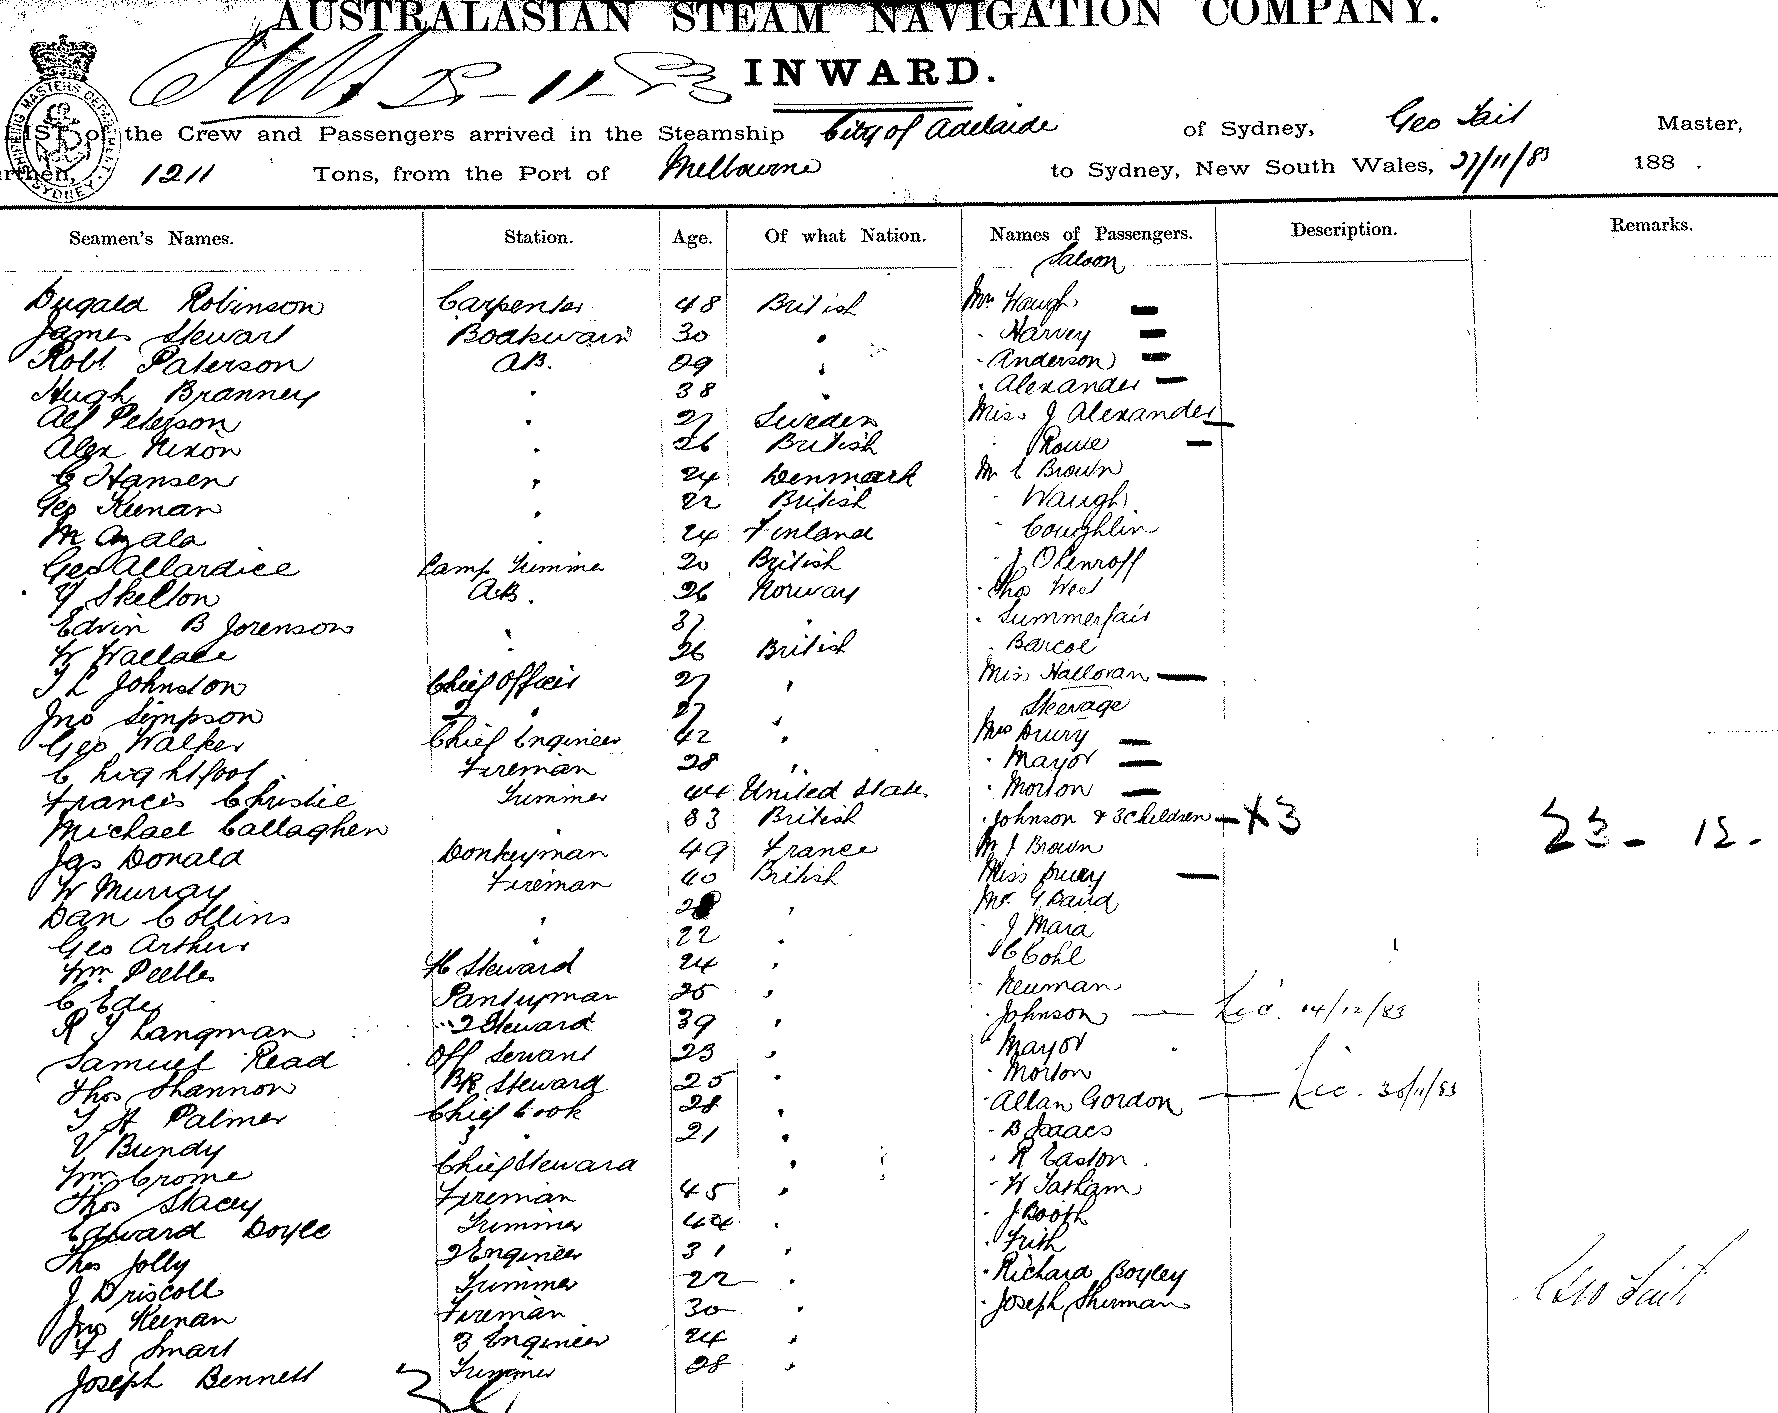 AUSTRALASIAN STEAM NAVIGATION COMPANY.
INWARD.
LIST of the Crew and Passengers arrived in the Steamship City of Adelaide of Sydney, Geo Tait Master,
1211 Tons, from the Port of Melbourne to Sydney, New South Wales, 27/11/83 188 .
Seamen's Names. Station. Age. Of what Nation. Names of Passengers. Description. Remarks.
Saloon
Dugald Robinson Carpenter 48 British Mrs Waugh
James Stewart Boatswain 30 " " Harvey
Robt Paterson AB. 29 " " Anderson
Hugh Branney " 38 " " Alexander
Alf Peterson " 27 Sweden Miss J Alexander
Alex Nixon " 26 British " Rowe
C Hansen " 24 Denmark Mr C Brown
Geo Keenan " 22 British " Waugh
M Azala " 24 Finland " Coughlin
Geo Allardice Lamp Trimmer 20 British " J
Skelton A.B. 26 Norway " Thos West
Edvin B Jorenson " 37 " " Summerfair
W Wallace " 26 British " Barcoe
J L Johnston Chief Officer 27 " Miss Halloran
Jno Simpson 2 " 27 " Steerage
Geo Walker Chief Engineer 42 " Mrs Drury
C Lightfoot Fireman 28 " " Mayor
Francis Christie Trimmer 44 United States " Morton
Michael Callaghen " 33 British " Johnson & 3 Children X3 23 - 12 -
Jas Donald Donkeyman 49 France Mr J Brown
W Murray Fireman 40 British Miss Drury
Dan Collins " " Mr G Baird
Geo Arthur " 22 " " J Mara
Wm Peebles Steward 24 " " C Cohl
C Edey Pantryman 25 " " Neuman
R J Langman 2 Steward 39 " " Johnson Lic. 14/12/83
Samuel Read Off Servant 23 " " Mayor
Thos Shannon BR Steward 25 " " Morton
J A Palmer Chief Cook 28 " " Allan Gordon Lic. 30/11/83
V Bundy 3 " 21 " " B Isaacs
Wm Crome Chief Steward " " R Easton
Thos Stacey Fireman 45 " " W Tatham
Edward Doyle Trimmer 44 " " J Booth
Thos Jolly 2 Engineer 31 " " Frith
J Driscoll Trimmer 22 " " Richard Boyley
Jno Keenan Fireman 30 " " Joseph Sherman Geo Tait
F S Smart 3 Engineer 24 "
Joseph Bennett Trimmer 28 "